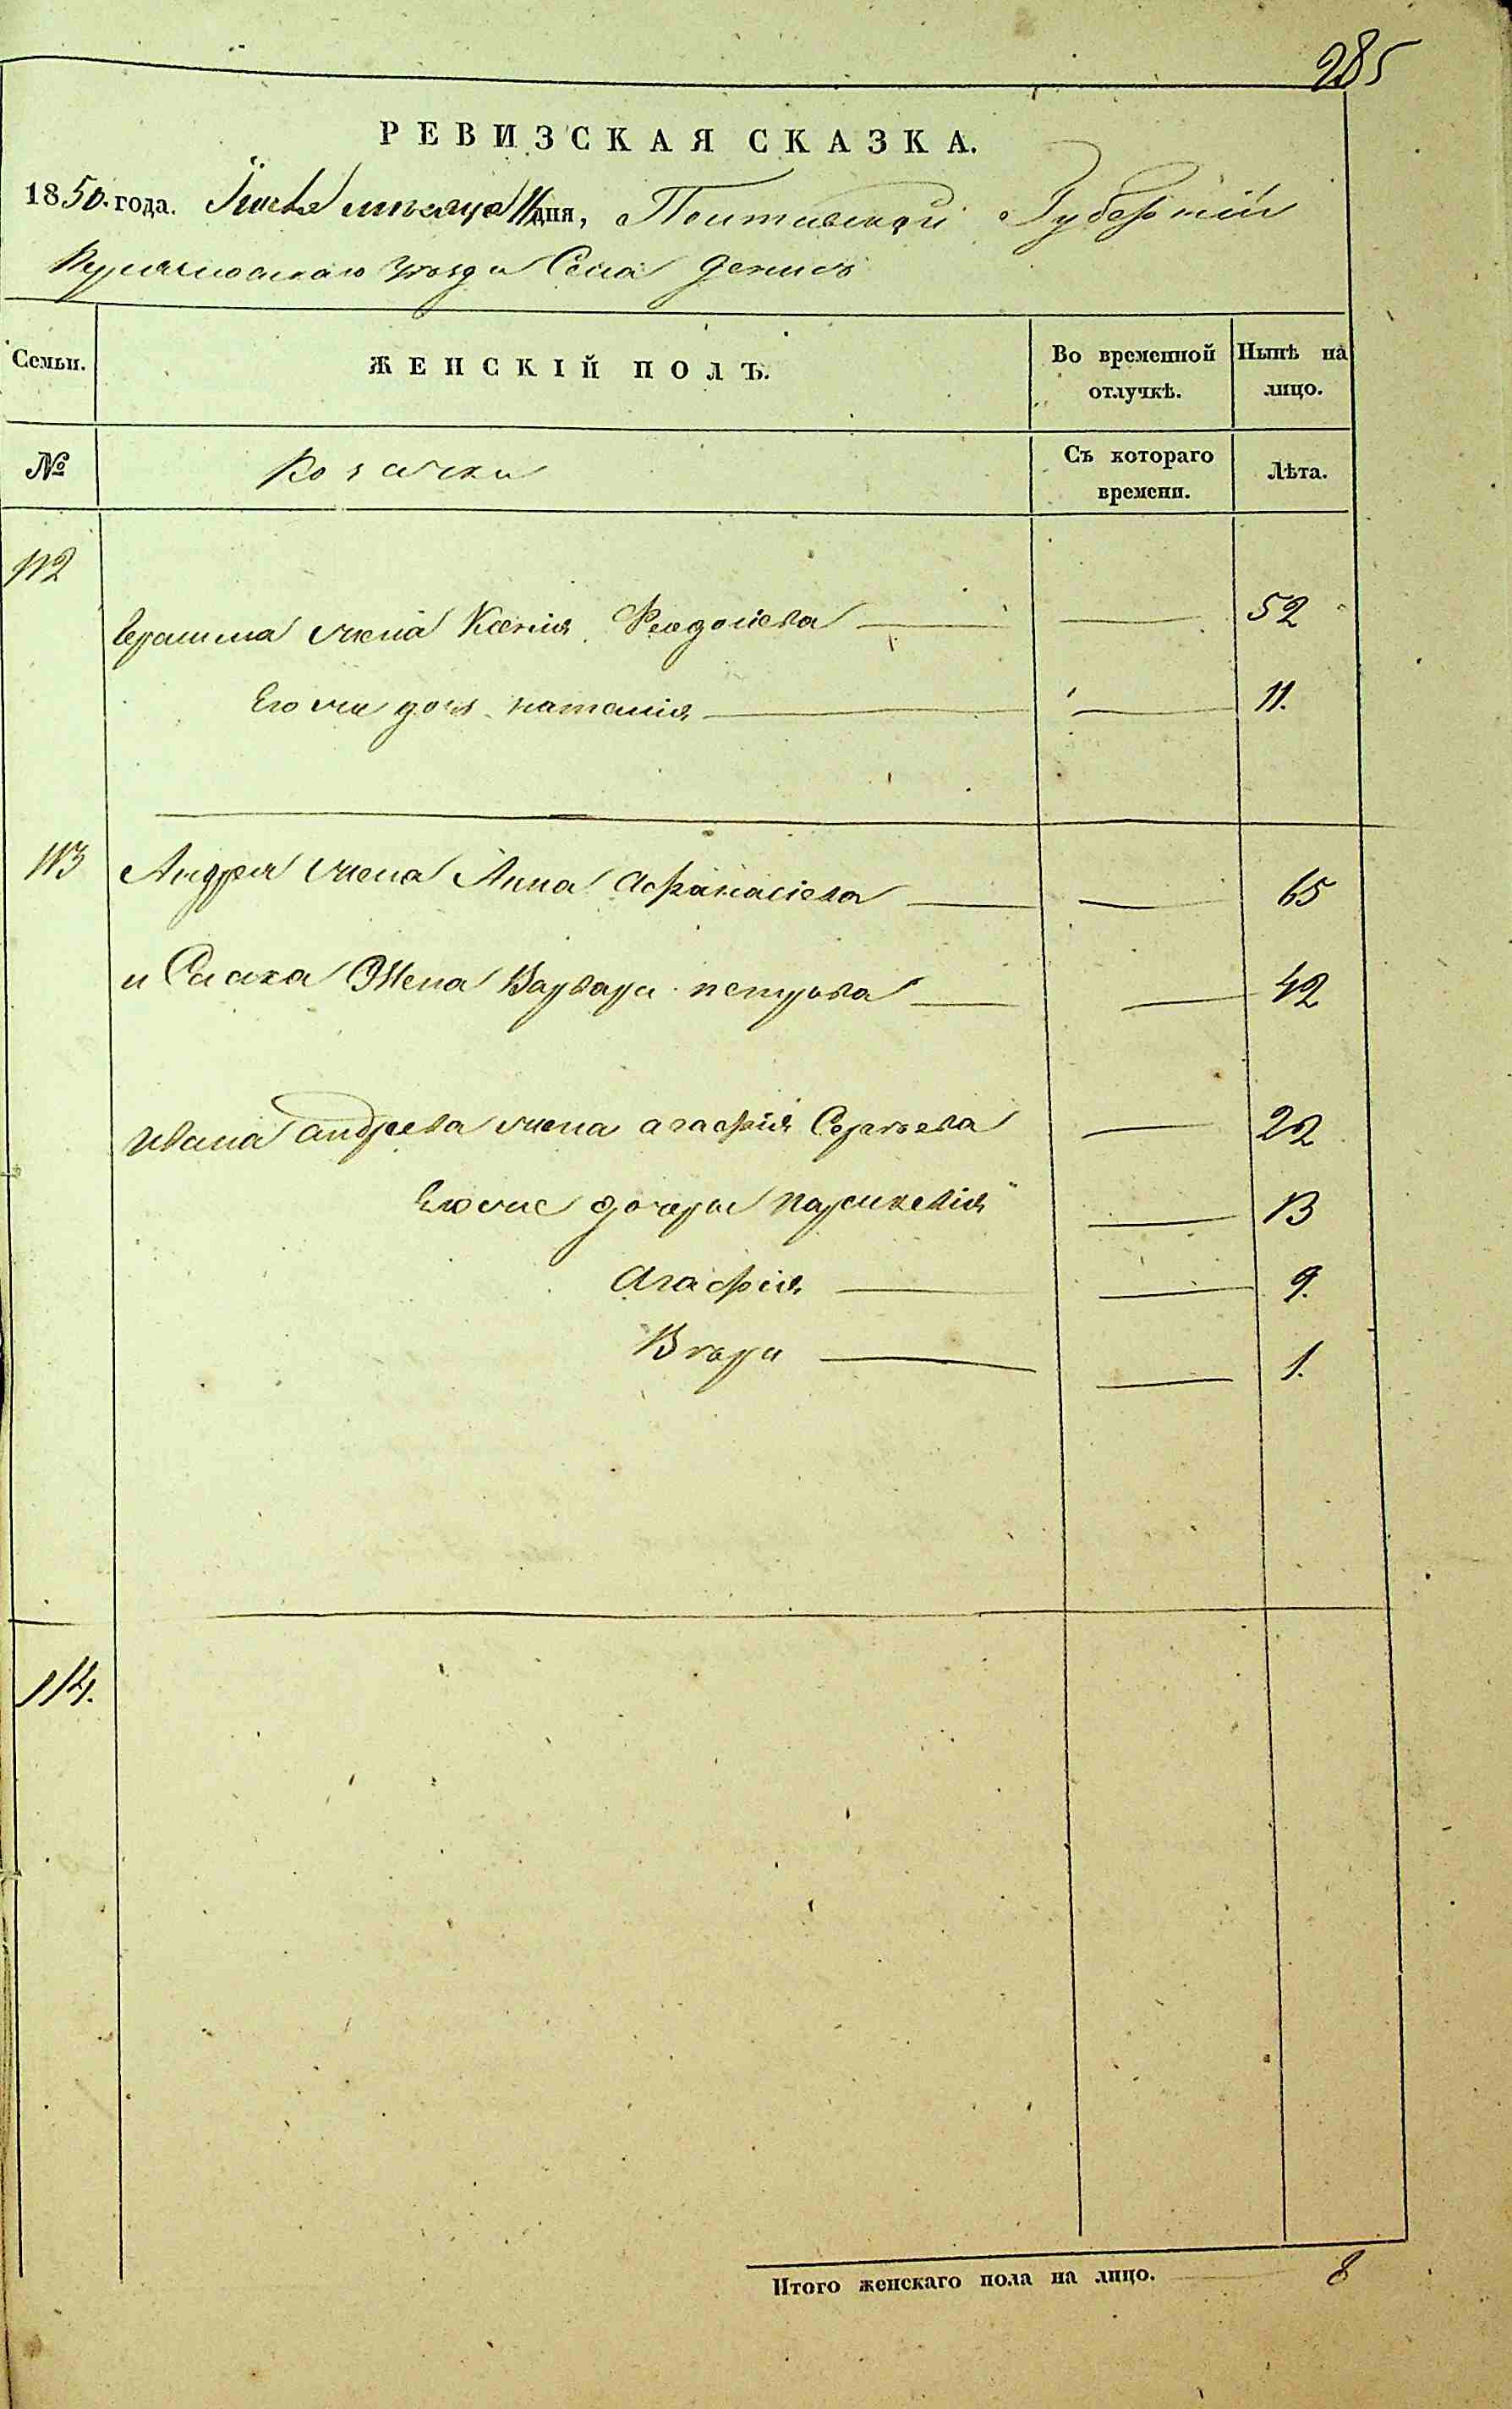 285
РЕВИЗСКАЯ СКАЗКА.
1850. года. Июля месяца 11 дня, Полтавской Губернии
уезда Села Денис
Семьи. ЖЕНСКІЙ ПОЛЪ. Во временной отлучкѣ. Нынѣ на лицо.
№ Козачки Съ котораго времени. Лѣта.
112
Герасима жена Ксенія Феодосіева 52
Его же дочь наталія 11.
113 Андрея жена Анна Афанасіева 65
и Жена Варвара петрова 42
Ивана андреева жена агафія Сергѣева 22
Его же дочери параскевія 13
Агафія 9.
Вѣра 1.
114.
Итого женскаго пола на лицо. 8